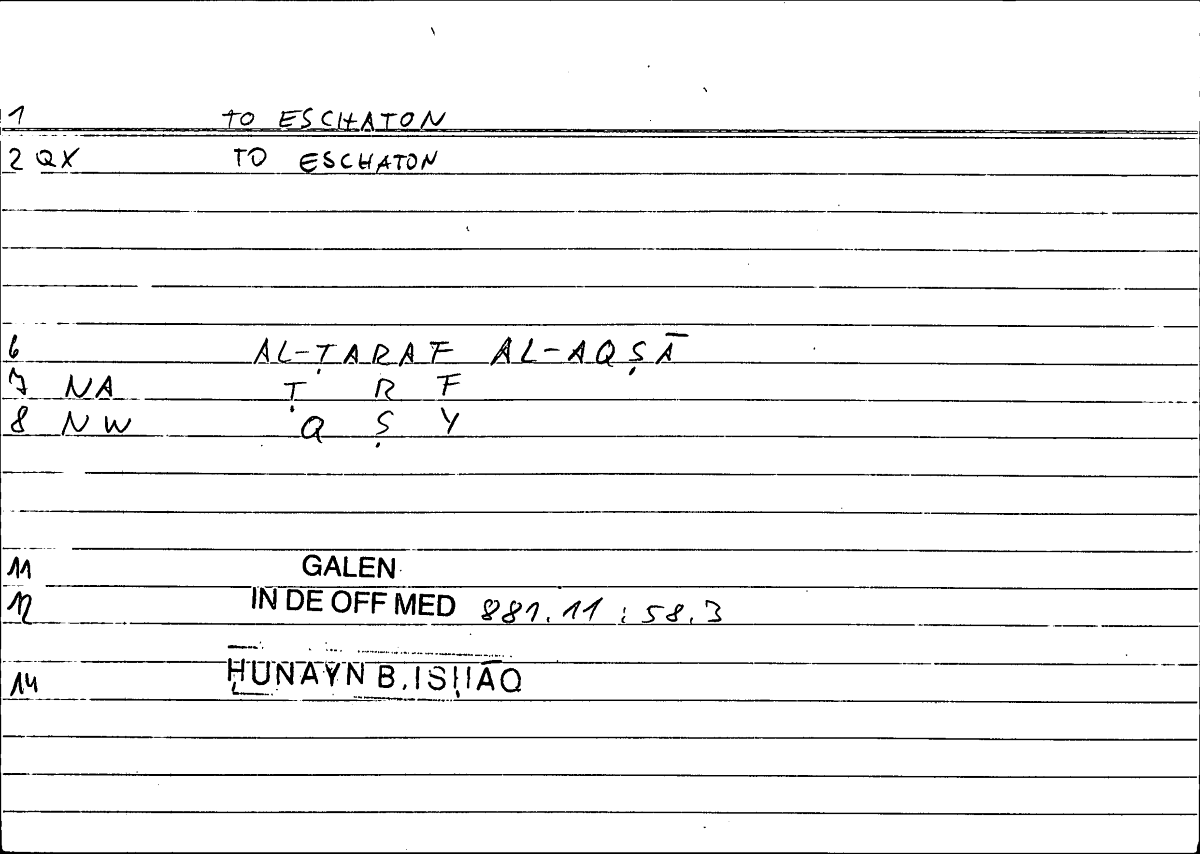 1 TO ESCHATON
2 QX TO ESCHATON
6 AL-ṬARAF AL-AQṢĀ
7 NA Ṭ R F
8 NW Q Ṣ Y
11 GALEN
12 IN DE OFF MED 881.11 : 58.3
14 ḤUNAYN B. ISḤĀQ